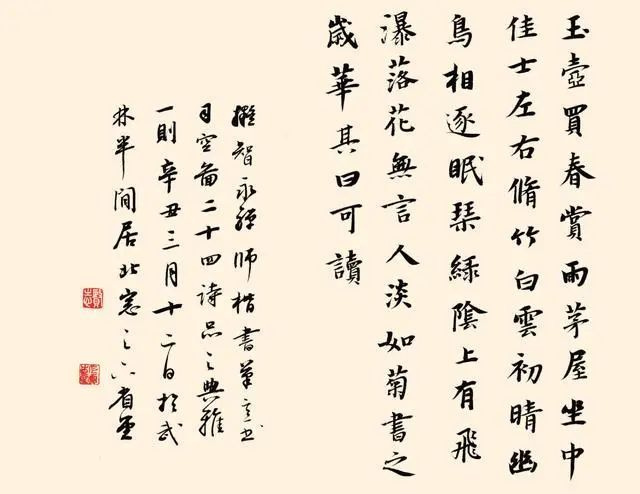 玉壺買春賞雨茅屋坐中
佳士左右脩竹白雲初晴幽
鳥相逐眠琹綠陰上有飛
瀑落花無言人淡如菊書之
歲華其曰可讀
擬智永禪師楷書筆意書
司空啚二十四詩品之典雅
一則辛丑三月十二日於武
林半間居北窓之下省